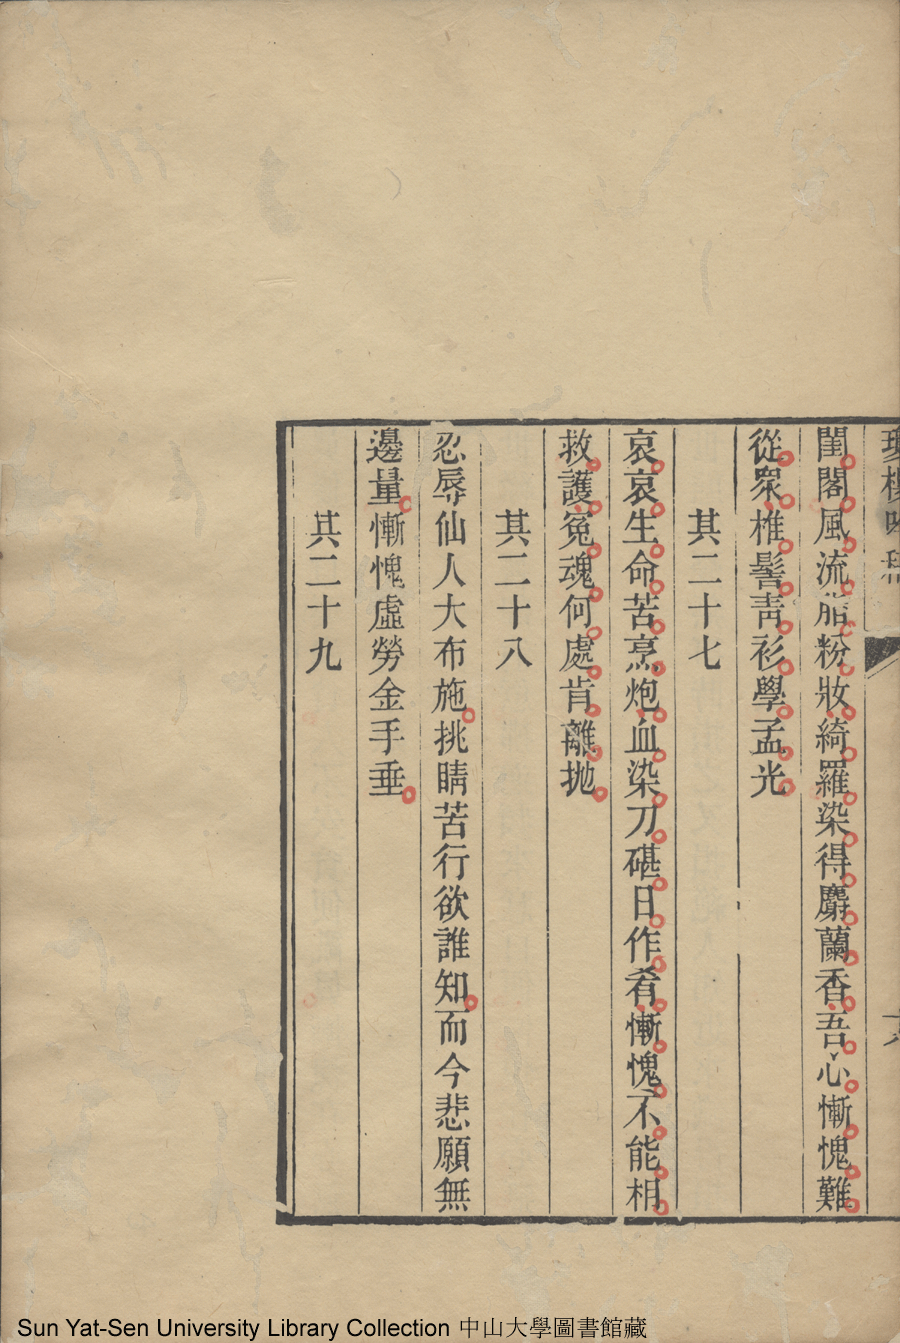 閨閣風流脂粉妝綺羅染得麝蘭香吾心慚愧難
從眾椎髻靑衫學孟光
其二十七
哀哀生命苦烹炮血染刀碪日作肴慚愧不能相
救護冤魂何處肯離拋
其二十八
忍辱仙人大布施挑睛苦行欲誰知而今悲願無
邊量慚愧虛勞金手垂
其二十九
Sun Yat-Sen University Library Collection 中山大學圖書館藏